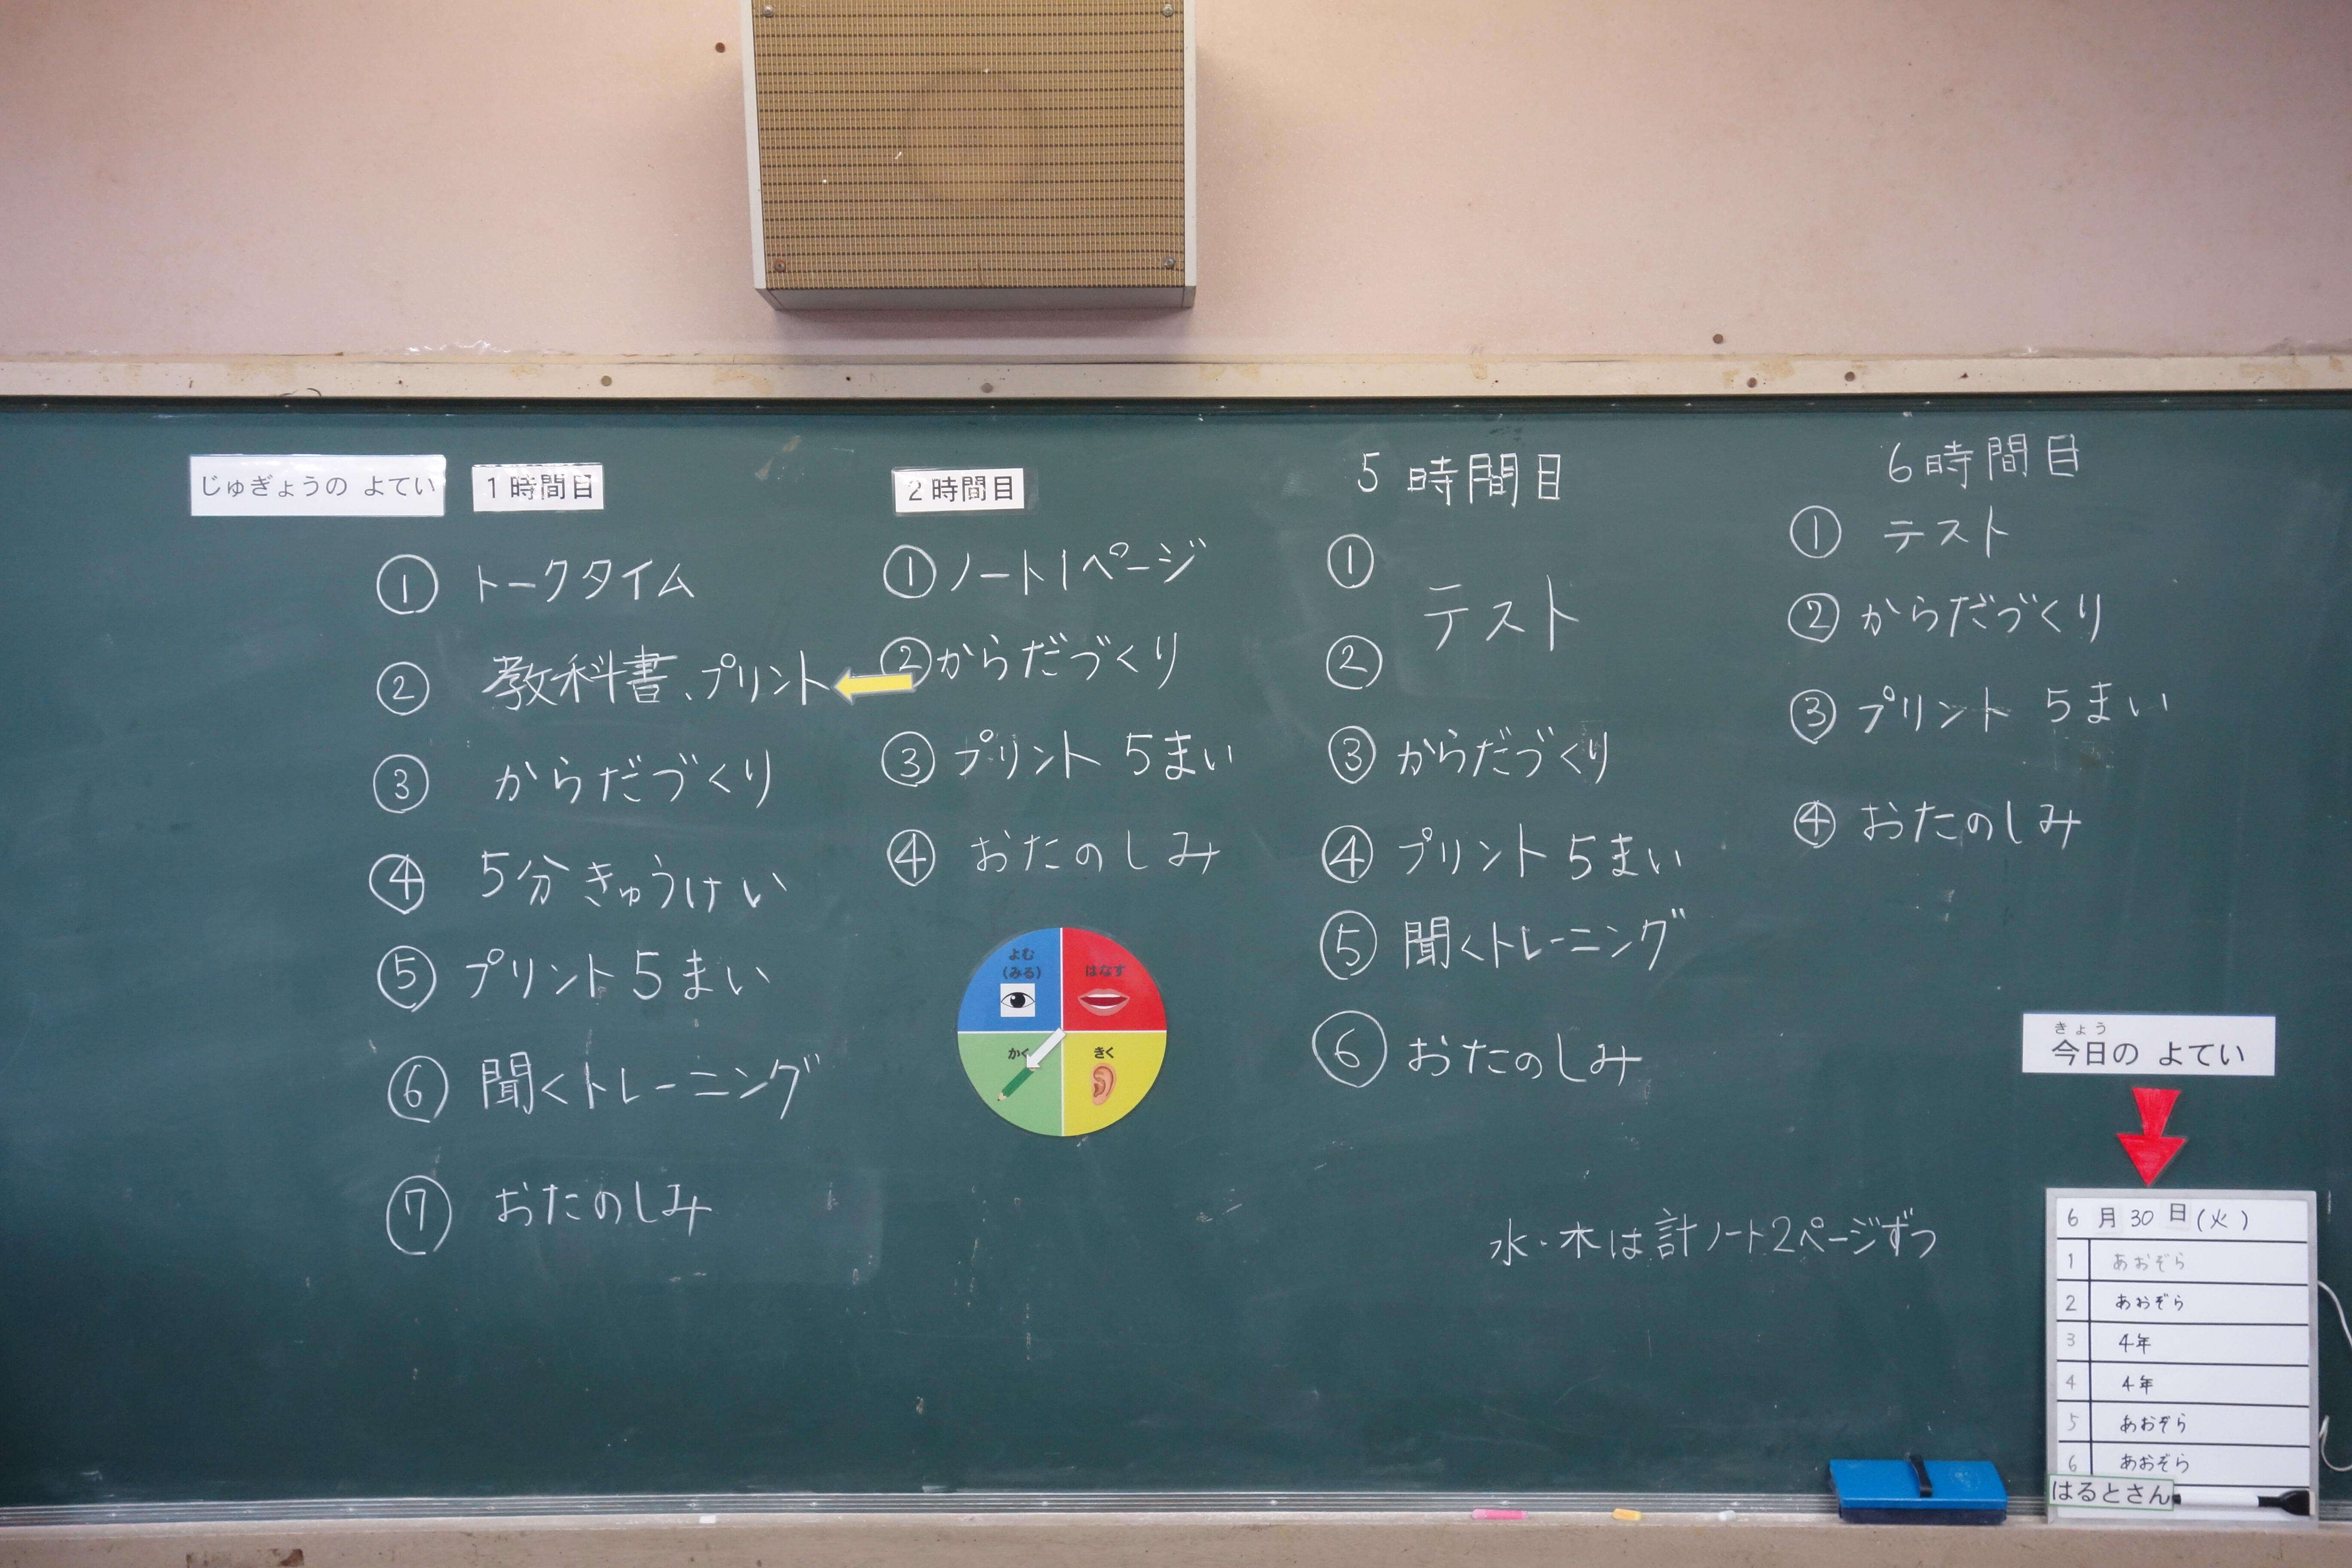 じゅぎょうの よてい
1時間目
① トークタイム
② 教科書、プリント
③ からだづくり
④ 5分きゅうけい
⑤ プリント5まい
⑥ 聞くトレーニング
⑦ おたのしみ
2時間目
① ノート1ページ
② からだづくり
③ プリント 5まい
④ おたのしみ
よむ
(みる)
はなす
かく
きく
5時間目
①
② テスト
③ からだづくり
④ プリント5まい
⑤ 聞くトレーニング
⑥ おたのしみ
6時間目
① テスト
② からだづくり
③ プリント 5まい
④ おたのしみ
水・木は計ノート2ページずつ
きょう
今日の よてい
6月30日(火)
1 あおぞら
2 あおぞら
3 4年
4 4年
5 あおぞら
6 あおぞら
はるとさん